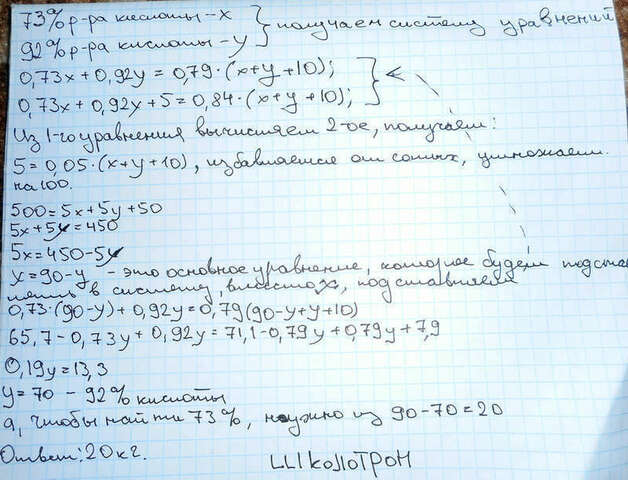 73% р-ра кислоты - x } получаем систему уравнений
92% р-ра кислоты - y
0,73x + 0,92y = 0,79·(x+y+10);
0,73x + 0,92y + 5 = 0,84·(x+y+10);
Из 1-го уравнения вычитаем 2-ое, получаем:
5 = 0,05·(x+y+10), избавляемся от сотых, умножаем
на 100.
500 = 5x + 5y + 50
5x + 5y = 450
5x = 450 - 5y
x = 90 - y - это основное уравнение, которое будем подстав
лять в систему, вместо x, подставляем
0,73·(90-y) + 0,92y = 0,79(90-y+y+10)
65,7 - 0,73y + 0,92y = 71,1 - 0,79y + 0,79y + 7,9
0,19y = 13,3
y = 70 - 92% кислоты
а, чтобы найти 73%, нужно из 90-70=20
Ответ: 20 кг.
ШКОЛОТРОН